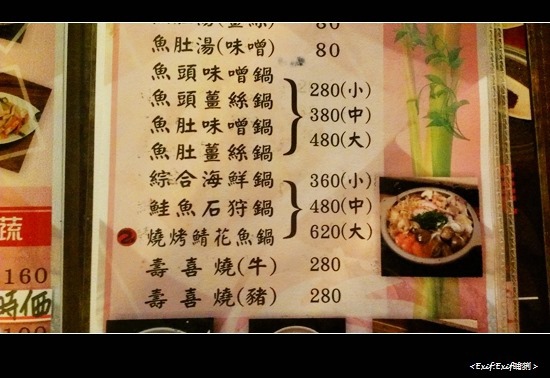 魚肚湯(薑絲) 80
魚肚湯(味噌) 80
魚頭味噌鍋
魚頭薑絲鍋
魚肚味噌鍋
魚肚薑絲鍋
280(小)
380(中)
480(大)
綜合海鮮鍋
鮭魚石狩鍋
2 燒烤鯖花魚鍋
360(小)
480(中)
620(大)
壽喜燒(牛) 280
壽喜燒(豬) 280
蔬
160
時価
100